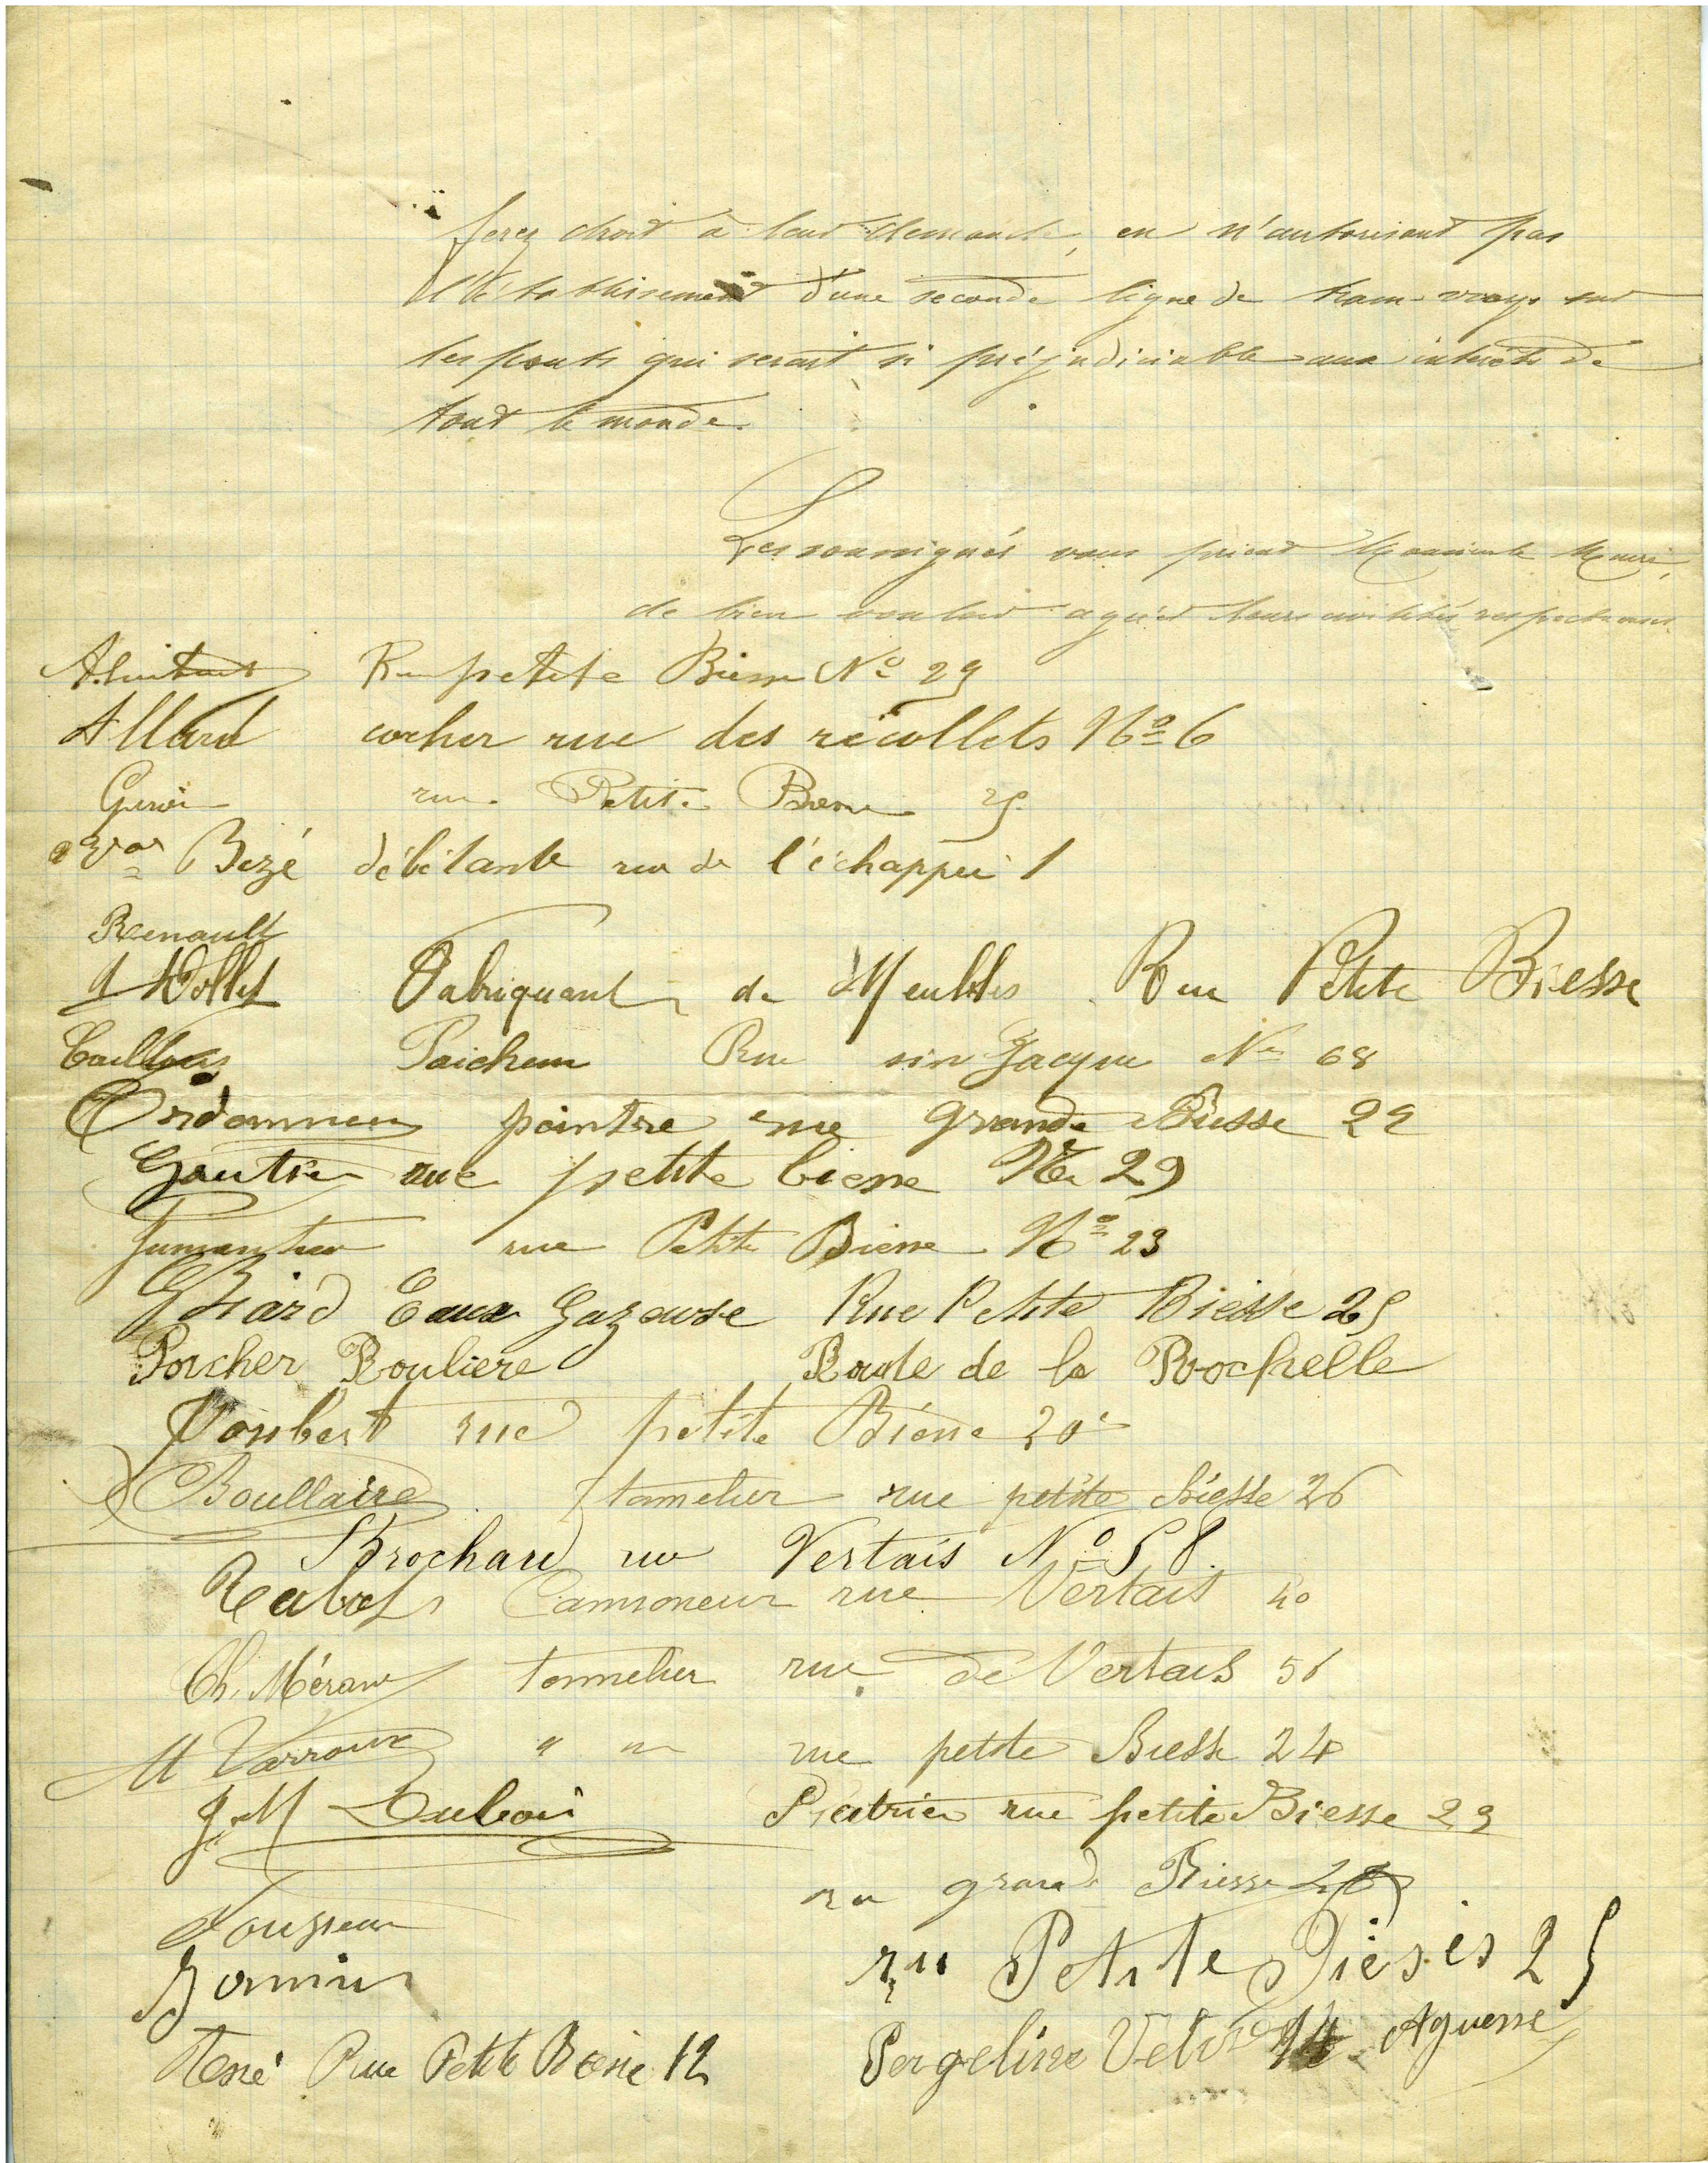 ferez droit à leur demande, en n'autorisant pas
l'établissement d'une seconde ligne de tram-ways sur
les ponts qui serait si préjudiciable aux intérêts de
tout le monde.
Les soussignés vous prient Monsieur le Maire,
de bien vouloir agréer leurs civilités respectueuses
Rue petite Biesse No 29
Allard cocher rue des récollets No 6
rue Petite Biesse
Bezé débitante rue de l'échappée 1
Renault
Fabriquant de Meubles Rue Petite Biesse
Rue sin Jacque No 68
peintre rue grande Biesse 22
Gautier rue petite biesse No 29
rue Petite Biesse No 23
Briard Eaux Gazeuse Rue Petite Biesse 25
Porcher Rouliere Route de la Rochelle
Joubert rue petite Biesse 20
Boullaire tonnelier rue petite Biesse 26
Brochard rue Vertais No 58.
Camioneur rue Vertais 40
Ch. Méran tonnelier rue de Vertais 56
" " rue petite Biesse 24
J. M Dubois Platrier rue petite Biesse 23
rue grande Biesse
ru Petite Bieses 25
René Rue Petite Biesse 12 Aguesse